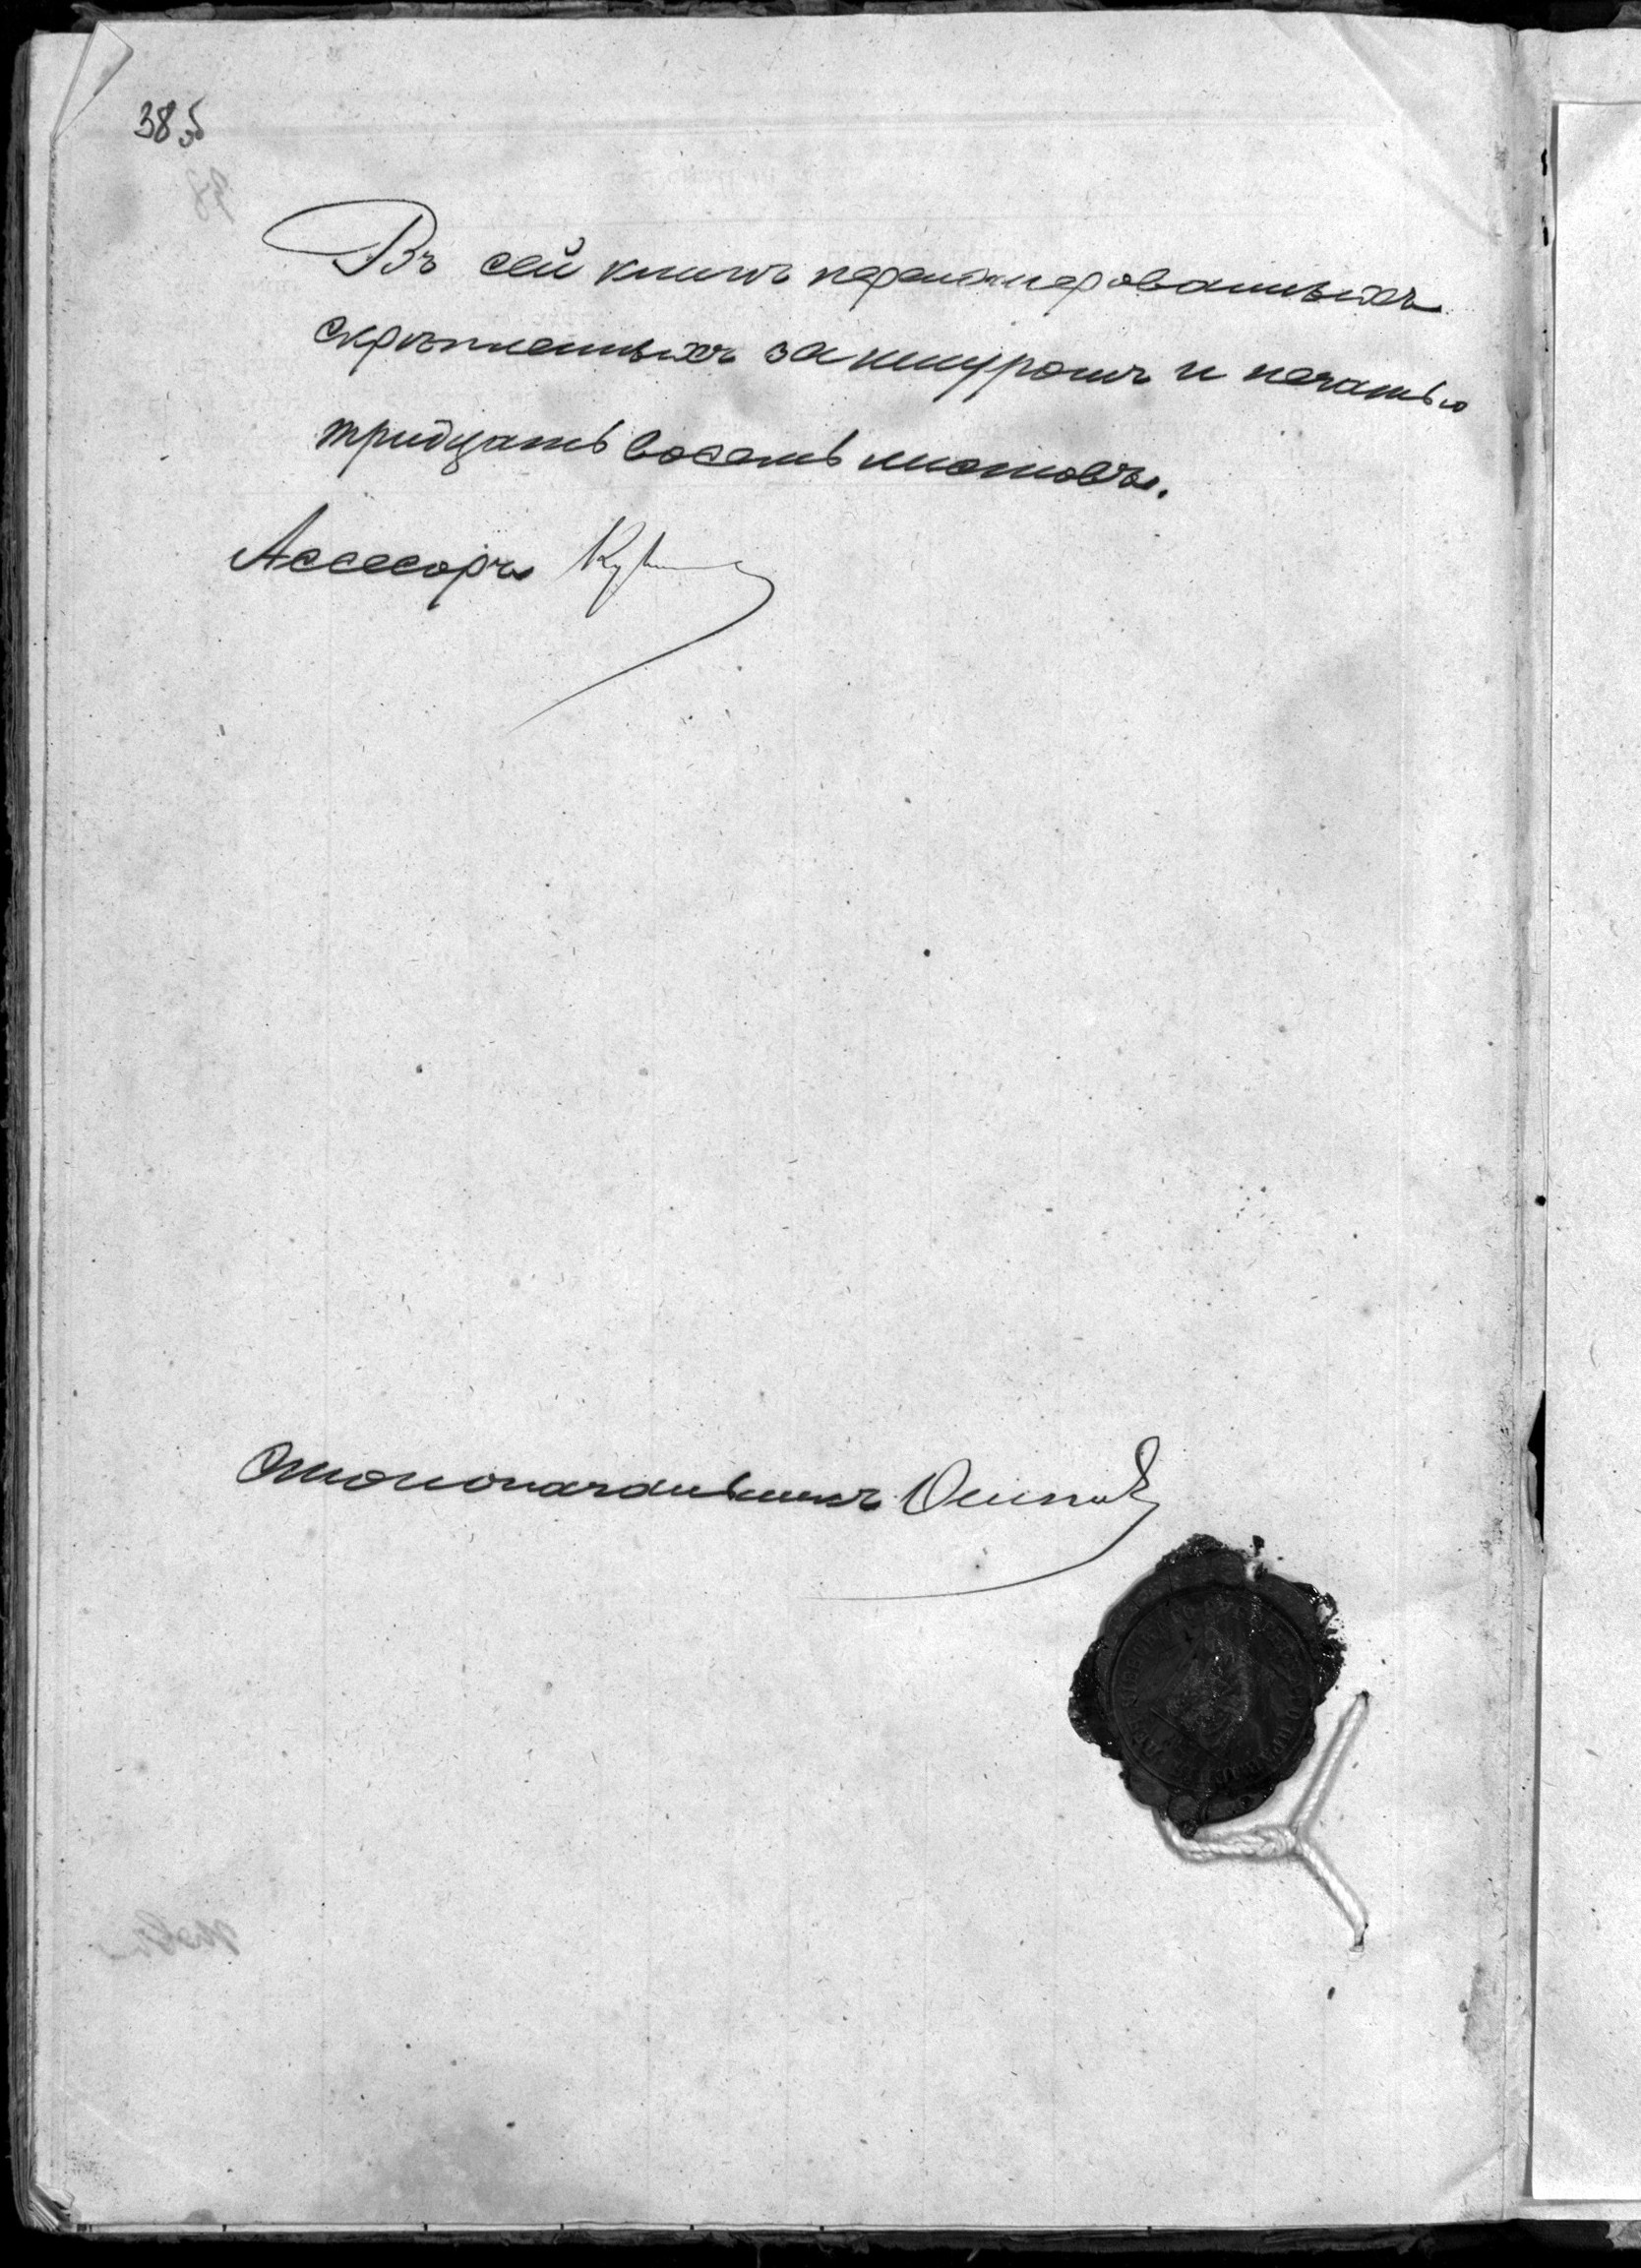 38 об
Въ сей книгѣ перенумерованныхъ
скрѣпленныхъ за шнуромъ и печатью
тридцать восемь листовъ.
Ассесоръ
Столоначальникъ